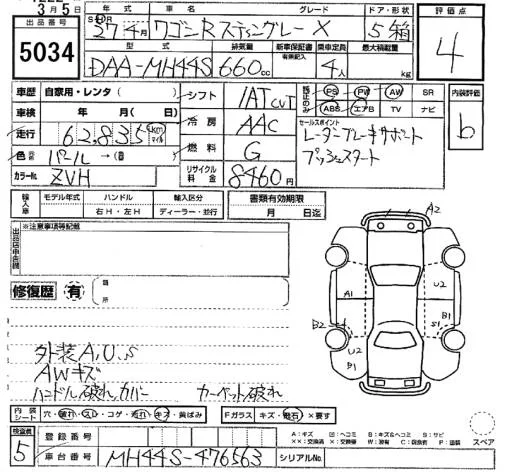 3月5日
出品番号
5034
年式 車名 グレード ドア・形状
27年4月 ワゴンRスティングレー X 5 箱
型式 排気量 新車保証書 有無記入 乗車定員 最大積載量
DAA-MH44S 660cc 4人 kg
評価点
4
車歴 自家用・レンタ( )
車検 年 月( 日)
走行 62,835km マイル
色 パール →( )
カラーNo. ZVH
シフト IAT CVT
冷房 AAC
燃料 G
リサイクル料金 8460円
PS PW AW SR
ABS エアB TV ナビ
セールスポイント
レーダーブレーキサポート
プッシュスタート
内装評価
b
輸入車 モデル年式 ハンドル 輸入区分 書類有効期限
右H・左H ディーラー・並行 月 日迄
※注意事項等記載
修復歴 有 箇所
外装A,U,S
AWキズ
ハンドル破れ,カバー カーペット破れ
内装シート 穴・破れ・スレ・コゲ・汚れ・キズ・黄ばみ Fガラス キズ・飛石・×要す
A2
U2
A1
B2
S1
B1
U2
B1
スペア
検査員
5
登録番号
車台番号 MH44S-476563 シリアルNo.
A:キズ U:ヘコミ B:キズ&ヘコミ S:サビ
XX:交換済 X:交換要 W:補修 C:腐食 P:塗装